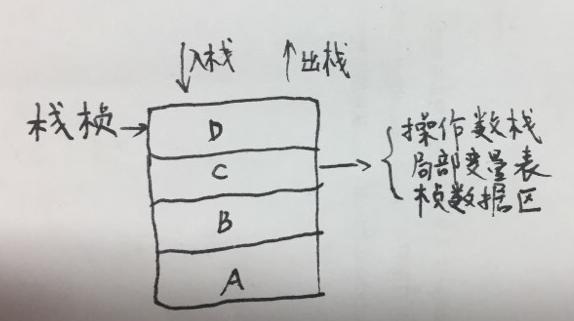 入栈 出栈
栈桢
D
C
B
A
操作数栈
局部变量表
桢数据区